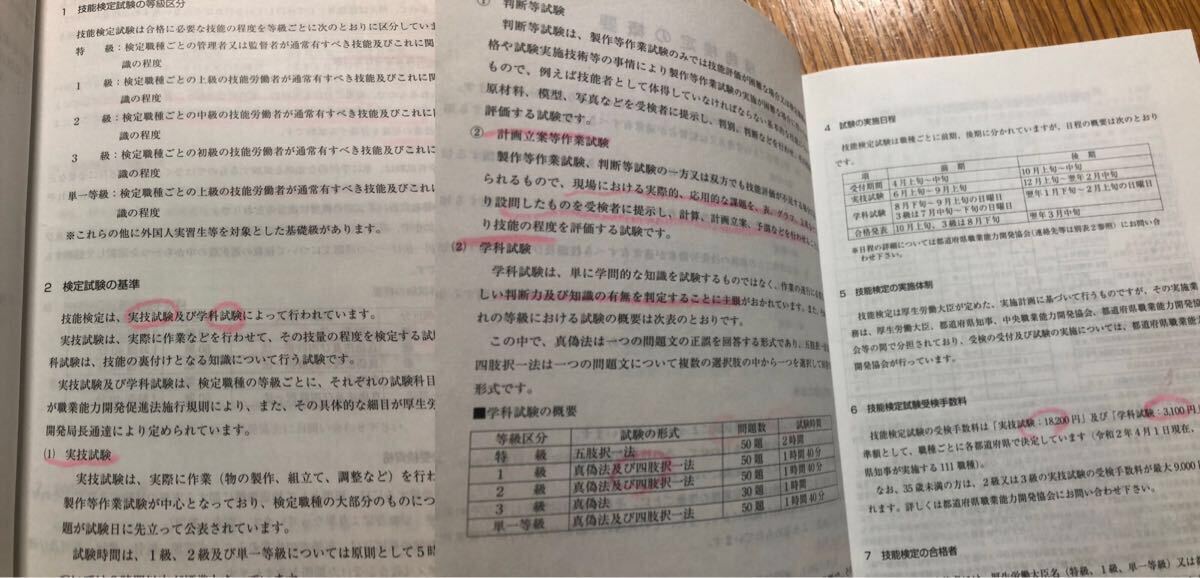 1 技能検定試験の等級区分
技能検定試験は合格に必要な技能の程度を等級ごとに次のとおりに区分していま
特 級：検定職種ごとの管理者又は監督者が通常有すべき技能及びこれに関
識の程度
1 級：検定職種ごとの上級の技能労働者が通常有すべき技能及びこれに関
識の程度
2 級：検定職種ごとの中級の技能労働者が通常有すべき技能及びこれに
識の程度
3 級：検定職種ごとの初級の技能労働者が通常有すべき技能及びこれに
識の程度
単一等級：検定職種ごとの上級の技能労働者が通常有すべき技能及びこれに
識の程度
※これらの他に外国人実習生等を対象とした基礎級があります。
2 検定試験の基準
技能検定は、実技試験及び学科試験によって行われています。
実技試験は、実際に作業などを行わせて、その技量の程度を検定する試
科試験は、技能の裏付けとなる知識について行う試験です。
実技試験及び学科試験は、検定職種の等級ごとに、それぞれの試験科目
が職業能力開発促進法施行規則により、また、その具体的な細目が厚生労
開発局長通達により定められています。
(1) 実技試験
実技試験は、実際に作業（物の製作、組立て、調整など）を行わ
製作等作業試験が中心となっており、検定職種の大部分のものにつ
題が試験日に先立って公表されています。
試験時間は、1級、2級及び単一等級については原則として5時
① 判断等試験
判断等試験は、製作等作業試験のみでは技能評価が困難な場合又は
格や試験実施技術等の事情により製作等作業試験の実施が困難な場合に
もので、例えば技能者として体得していなければならない基本的な
原材料、模型、写真などを受検者に提示し、判別、判断などを行わせ、
評価する試験です。
② 計画立案等作業試験
製作等作業試験、判断等試験の一方又は双方でも技能評価が不足する場合
られるもので、現場における実際的、応用的な課題を、表、グラフ、
り設問したものを受検者に提示し、計算、計画立案、予測などを行わせる
り技能の程度を評価する試験です。
(2) 学科試験
学科試験は、単に学問的な知識を試験するものではなく、作業の遂行に
しい判断力及び知識の有無を判定することに主眼がおかれています。また、
れの等級における試験の概要は次表のとおりです。
この中で、真偽法は一つの問題文の正誤を回答する形式であり、五肢択一法
四肢択一法は一つの問題文について複数の選択肢の中から一つを選択して
形式です。
■学科試験の概要
等級区分 試験の形式 問題数 試験時間
特 級 五肢択一法 50題 2時間
1 級 真偽法及び四肢択一法 50題 1時間40分
2 級 真偽法及び四肢択一法 50題 1時間40分
3 級 真偽法 30題 1時間
単一等級 真偽法及び四肢択一法 50題 1時間40分
4 試験の実施日程
技能検定試験は職種ごとに前期、後期に分かれていますが、日程の概要は次のとおり
です。
項 前 期 後 期
受付期間 4月上旬～中旬 10月上旬～中旬
実技試験 6月上旬～9月上旬 12月上旬～翌年2月中旬
学科試験 8月下旬～9月上旬の日曜日 翌年1月下旬～2月上旬の日曜日
3級は7月中旬～下旬の日曜日
合格発表 10月上旬、3級は8月下旬 翌年3月中旬
※日程の詳細については都道府県職業能力開発協会（連絡先等は別表2参照）にお問い合
わせ下さい。
5 技能検定の実施体制
技能検定は厚生労働大臣が定めた、実施計画に基づいて行うものですが、その実施業
務は、厚生労働大臣、都道府県知事、中央職業能力開発協会、都道府県職業能力開発
会等の間で分担されており、受検の受付及び試験の実施については、都道府県職業能力
開発協会が行っています。
6 技能検定試験受検手数料
技能検定試験の受検手数料は「実技試験：18,200円」及び「学科試験：3,100円」
準額として、職種ごとに各都道府県で決定しています（令和2年4月1日現在、
県知事が実施する111職種）。
なお、35歳未満の方は、2級又は3級の実技試験の受検手数料が最大9,000
れます。詳しくは都道府県職業能力開発協会にお問い合わせ下さい。
7 技能検定の合格者